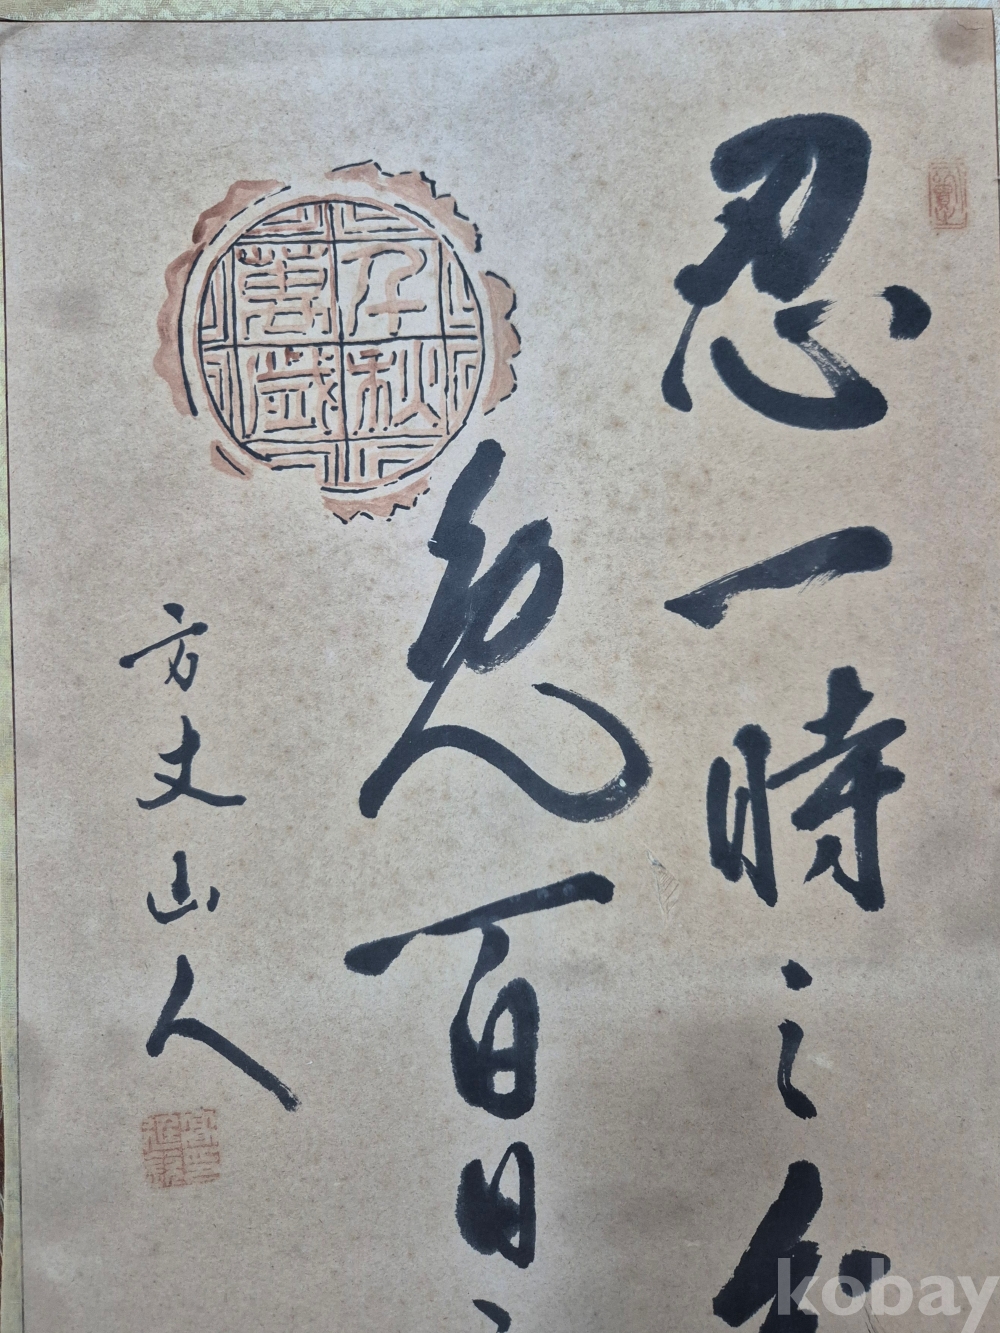 忍一時之
免百日之
千秋
萬歲
方丈山人
kobay